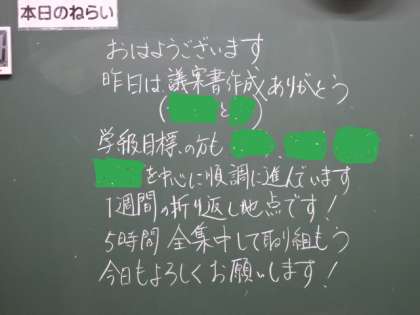 本日のねらい
おはようございます
昨日は、議案書作成ありがとう
(と)
学級目標の方も、
を中心に順調に進んでいます
1週間の折り返し地点です!
5時間 全集中して取り組もう
今日もよろしくお願いします!